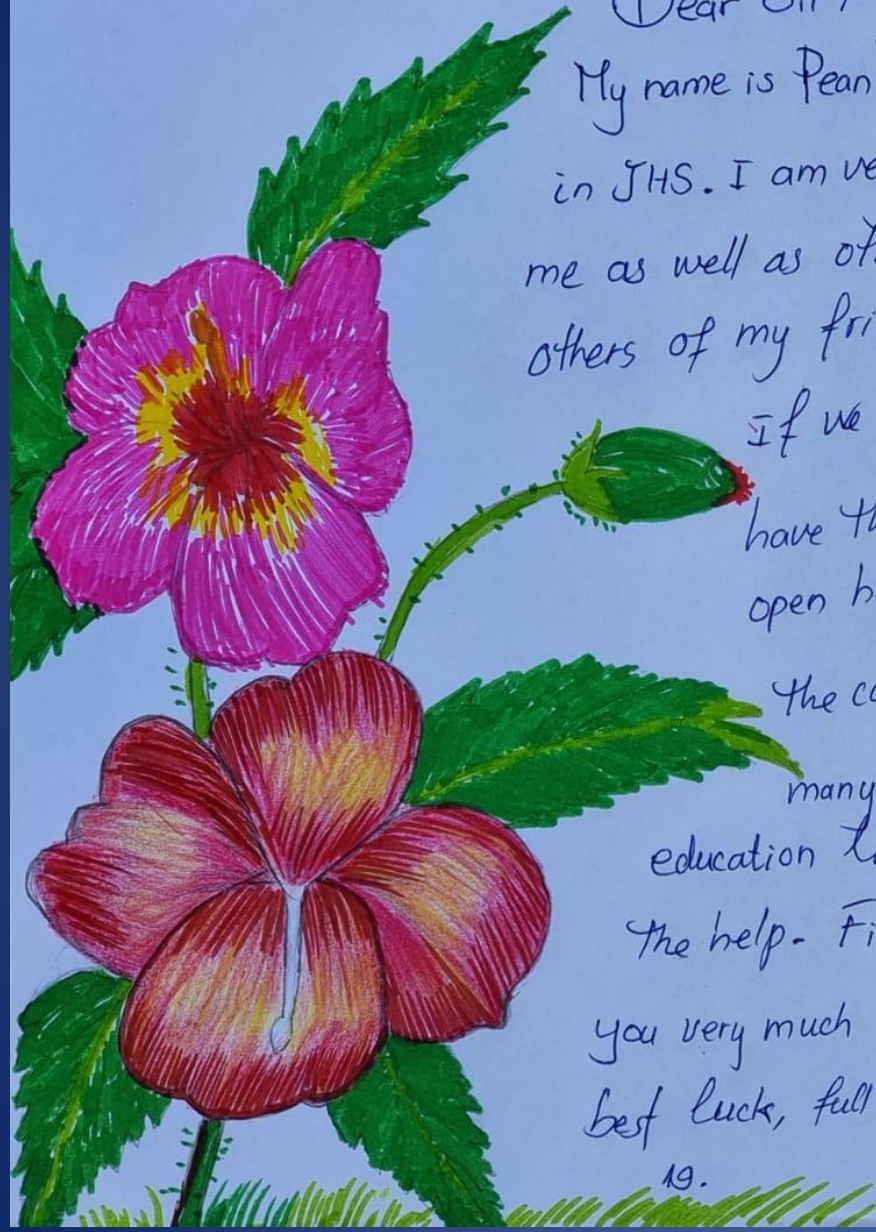 Dear Sir,
My name is Pean
in JHS. I am ve
me as well as ot
others of my fri
If we
have th
open h
the co
many
education
the help. Fi
you very much
best luck, full
19.